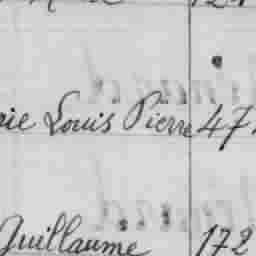 Louis Pierre 47
Guillaume 172